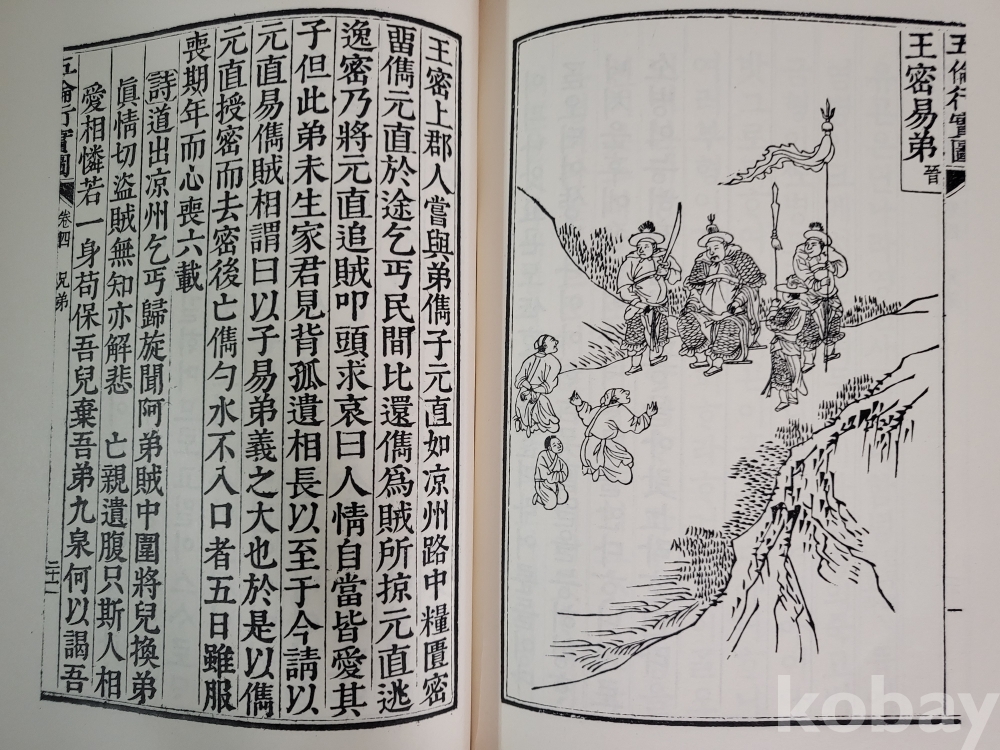 五倫行實圖
王密易弟 晉
王密上郡人嘗與弟儁子元直如凉州路中糧匱密
留儁元直於途乞丐民間比還儁爲賊所掠元直逃
逸密乃將元直追賊叩頭求哀曰人情自當皆愛其
子但此弟未生家君見背孤遺相長以至于今請以
元直易儁賊相謂曰以子易弟義之大也於是以儁
元直授密而去密後亡儁勺水不入口者五日雖服
喪期年而心喪六載
詩道出凉州乞丐歸旋聞阿弟賊中圍將兒換弟
眞情切盜賊無知亦解悲 亡親遺腹只斯人相
愛相憐若一身苟保吾兒棄吾弟九泉何以謁吾
五倫行實圖 卷四 兄弟 二十一
kobay